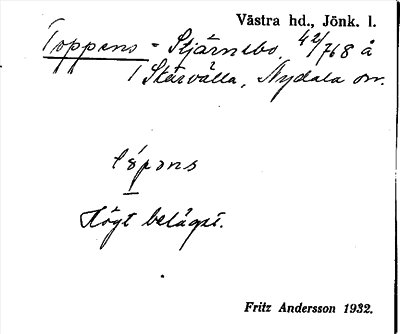 Västra hd., Jönk. l.
Toppens = Stjärnebo, 42/768 å
1 Skärvålla, Nydala sn.
Högt beläget.
Fritz Andersson 1932.